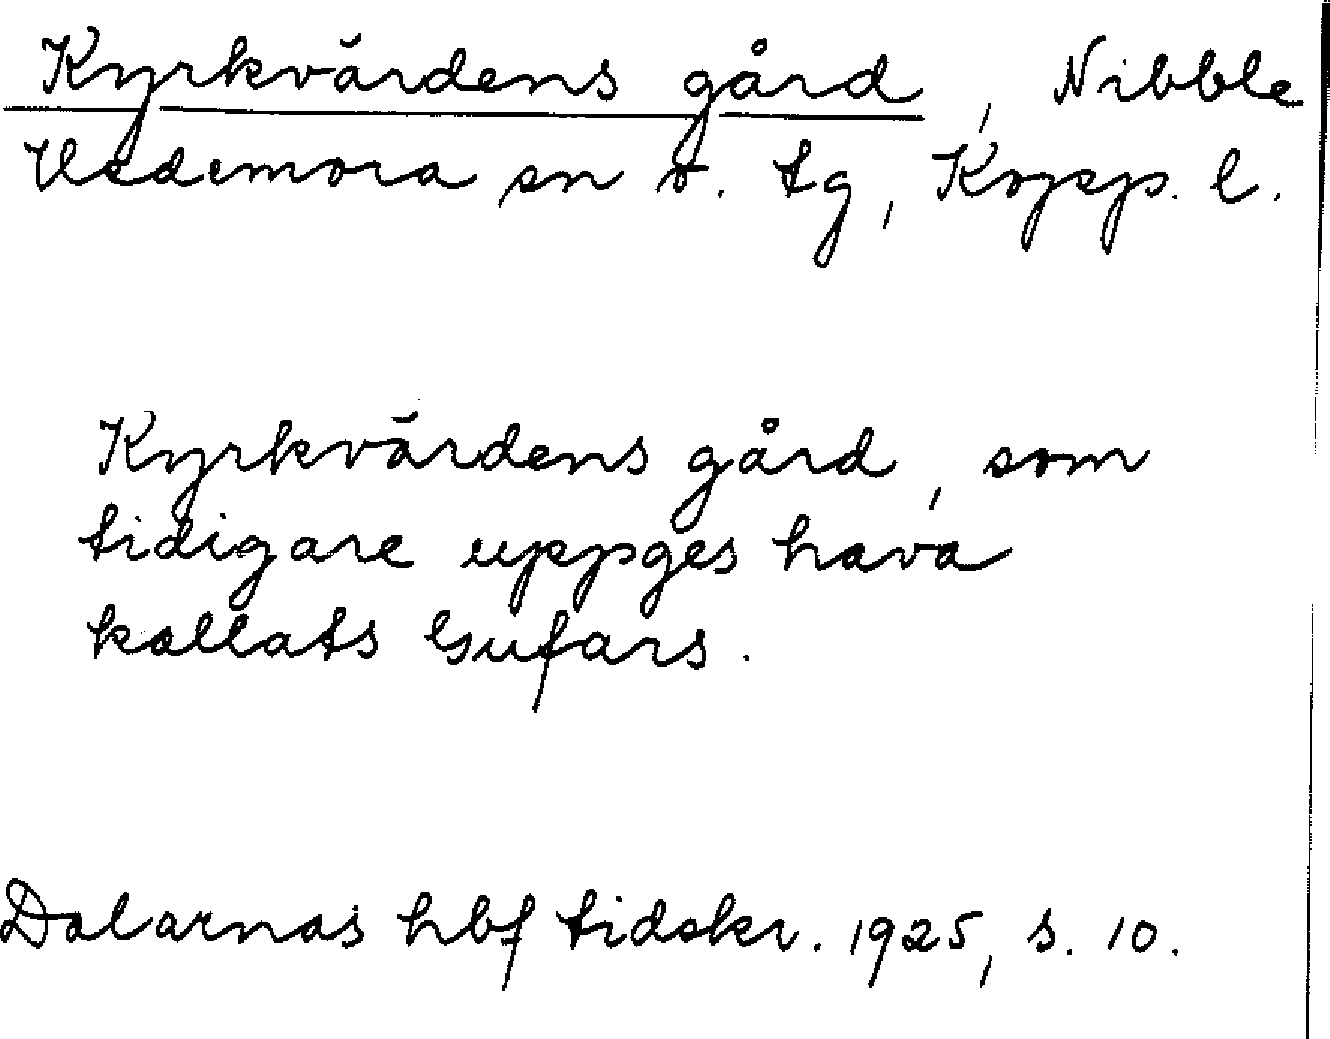 Kyrkvärdens gård, Nibble
Hedemora sn o. tg, Kopp. l.
Kyrkvärdens gård, som
tidigare uppges hava
kallats Gufars.
Dalarnas hbf tidskr. 1925, s. 10.